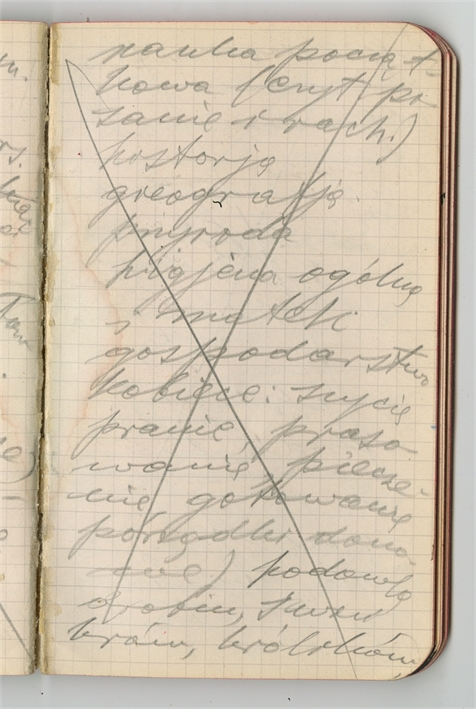 nauka począt-
kowa (czyt pi
sanie i rach.)
historję
geografję
przyroda
higjena ogólna
i matek
gospodarstwo
kobiece: szycie
pranie, praso
wanie, piecze-
nie, gotowanie
porządki domo
we) hodowla
drobiu,
krów, królików,